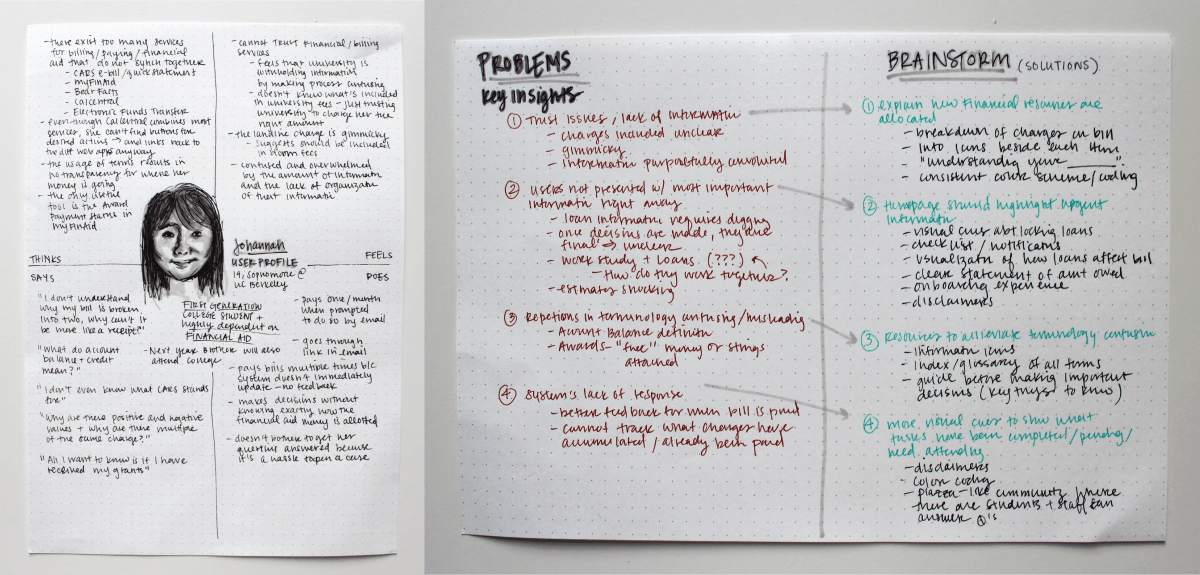 - there exist too many services
for billing/paying/financial
aid that do not synch together
- CARS e-bill/quickstatement
- myFinAid
- Bear Facts
- CalCentral
- Electronic Funds Transfer
- even though CalCentral combines most
services, she can't find buttons for
desired actions → and links back to
the diff web apps anyway.
- the usage of terms results in
no transparency for where her
money is going
- the only useful
tool is the Award
payment status in
myFinAid
THINKS
- cannot TRUST financial/billing
services
- feels that university is
withholding information
by making process confusing
- doesn't know what's included
in university fees - just trusting
university to charge her the
right amount
- the landline charge is gimmicky
- suggests should be included
in room fees
- confused and overwhelmed
by the amount of information
and the lack of organization
of their information
FEELS
Johannah
USER PROFILE
19, sophomore @
UC Berkeley
FIRST GENERATION
COLLEGE STUDENT +
highly dependent on
FINANCIAL AID
- Next year brother will also
attend college
SAYS
"I don't understand
why my bill is broken
into two, why can't it
be more like a receipt?"
"What do account
balance + credit
mean?"
"I don't even know what CARS stands
for"
"Why are there positive and negative
values + why are there multiple
of the same charge?"
"All I want to know is if I have
received my grants"
DOES
- pays once/month
when prompted
to do so by email
- goes through
link in email
- pays bills multiple times b/c
system doesn't immediately
update - no feedback
- makes decisions without
knowing exactly how the
financial aid money is allotted
- doesn't bother to get her
questions answered because
it's a hassle to open a case
PROBLEMS
Key Insights
① Trust issues / lack of information
- charges included unclear
- gimmicky
- Information purposefully convoluted
② Users not presented w/ most important
information right away
- loan information requires digging
- once decisions are made, they are
final → unclear
- work study + loans (???)
- How do they work together?
- estimates shocking
③ Repetions in terminology confusing/misleading
- Account Balance definition
- Awards - "free" money or strings
attached
④ System's lack of response
- better feedback for when bill is paid
- cannot track what charges have
accumulated / already been paid
BRAINSTORM (SOLUTIONS)
① explain how financial resources are
allocated
- breakdown of charges in bill
- info icons beside each item
- "understanding your ______".
- consistent color scheme/coding
② Homepage should highlight urgent
information
- visual cues abt locking loans
- checklist / notifications
- visualization of how loans affect bill
- clear statement of amt owed
- onboarding experience
- disclaimers
③ Resources to alleviate terminology confusion
- information icons
- Index/glossary of all terms
- guide before making important
decisions (key things to know)
④ more visual cues to show what
tasks have been completed/pending/
need attending
- disclaimers
- color coding
- piazza-like community where
there are students + staff can
answer Q's